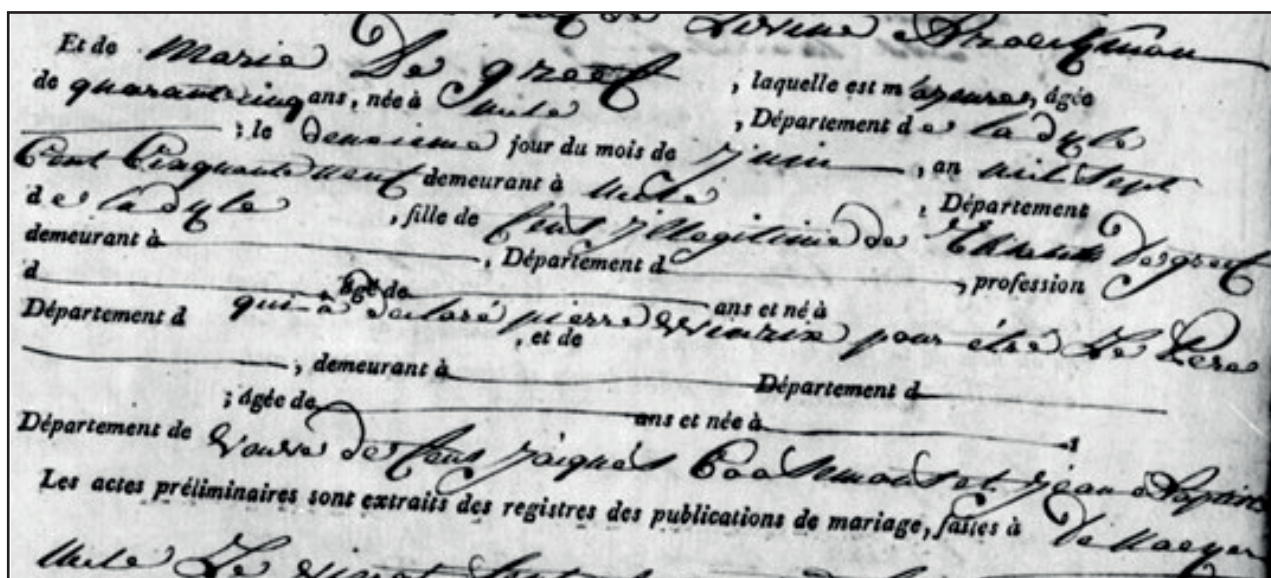 de Lorine
Et de Marie De greef , laquelle est majeure, âgée
de quarant cinq ans, née à Uccle , Département de la dyle
; le deuxieme jour du mois de juin , an mil sept
Cent Cinquante neuf demeurant à Uccle , Département
de la dyle , fille de feus illegitime de Elisabeth De greef
demeurant à , Département d , profession
d , âgé de ans et né à
Département d qui a declaré pierre Winrix pour étre Le Pere
, et de
, demeurant à Département d
; âgée de ans et née à
Département de veuve de feus jaques et jean Baptiste
Les actes préliminaires sont extraits des registres des publications de mariage, faites à de Maeyer
Uccle Le vingt Sept